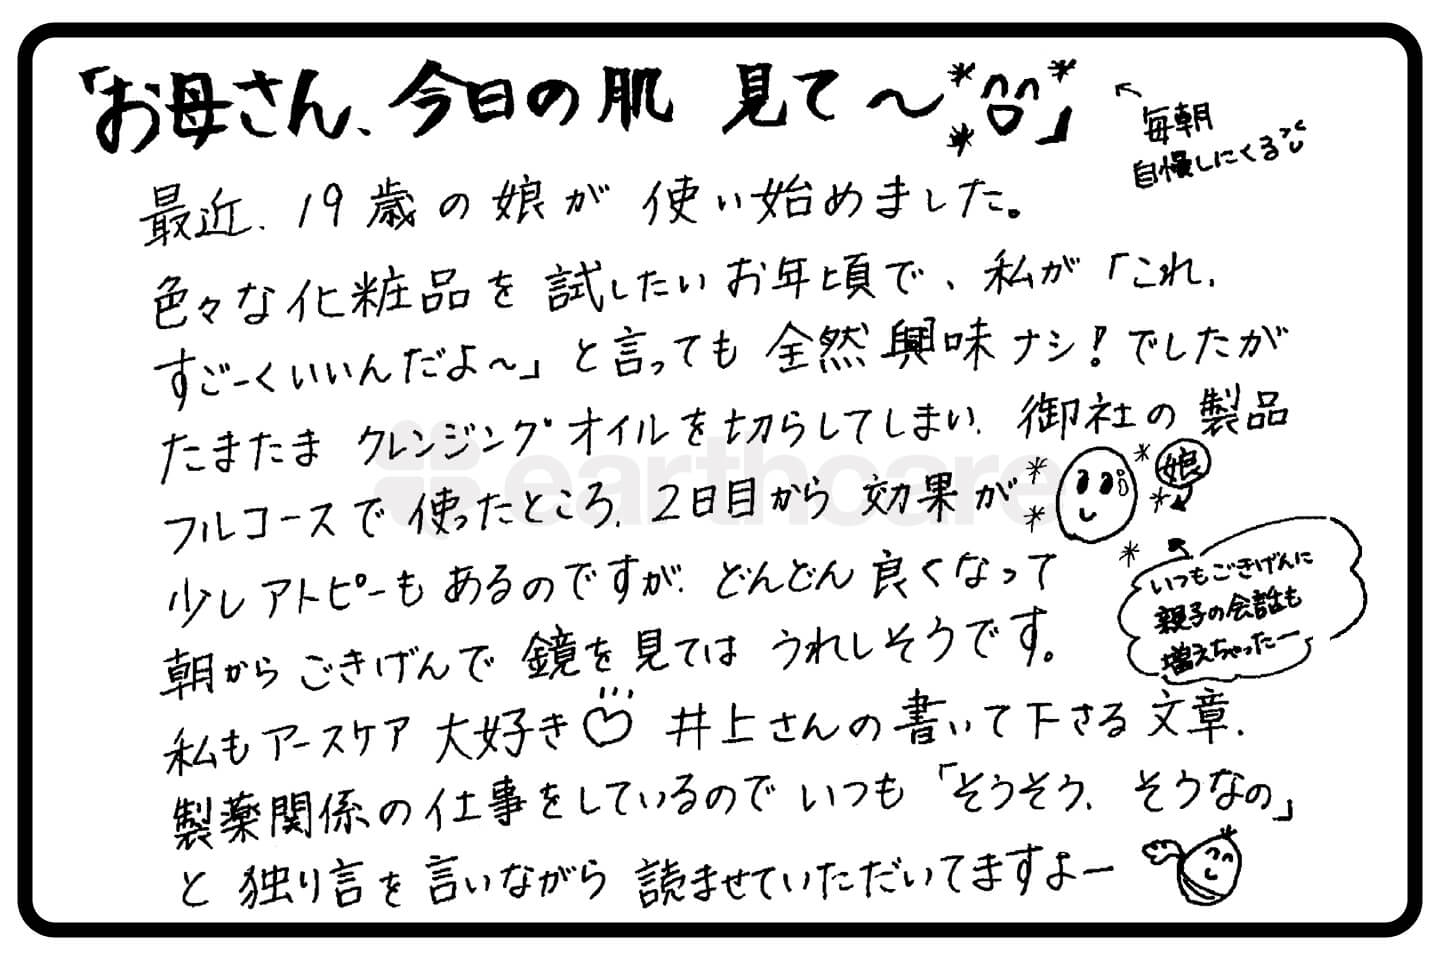 「お母さん、今日の肌 見て〜」
毎朝
自慢しにくる
最近、19歳の娘が 使い始めました。
色々な化粧品を 試したいお年頃で、私が「これ、
すごーくいいんだよ〜」と言っても 全然 興味ナシ！でしたが
たまたま クレンジングオイルを切らしてしまい、御社の製品
フルコースで 使ったところ、2日目から 効果が
娘
少しアトピーも あるのですが、どんどん 良くなって
いつもごきげんに
親子の会話も
増えちゃったー
朝から ごきげんで 鏡を見ては うれしそうです。
私もアースケア 大好き 井上さんの書いて下さる文章、
製薬関係の仕事をしているので いつも「そうそう、そうなの」
と 独り言を言いながら 読ませていただいてますよー
earthcare